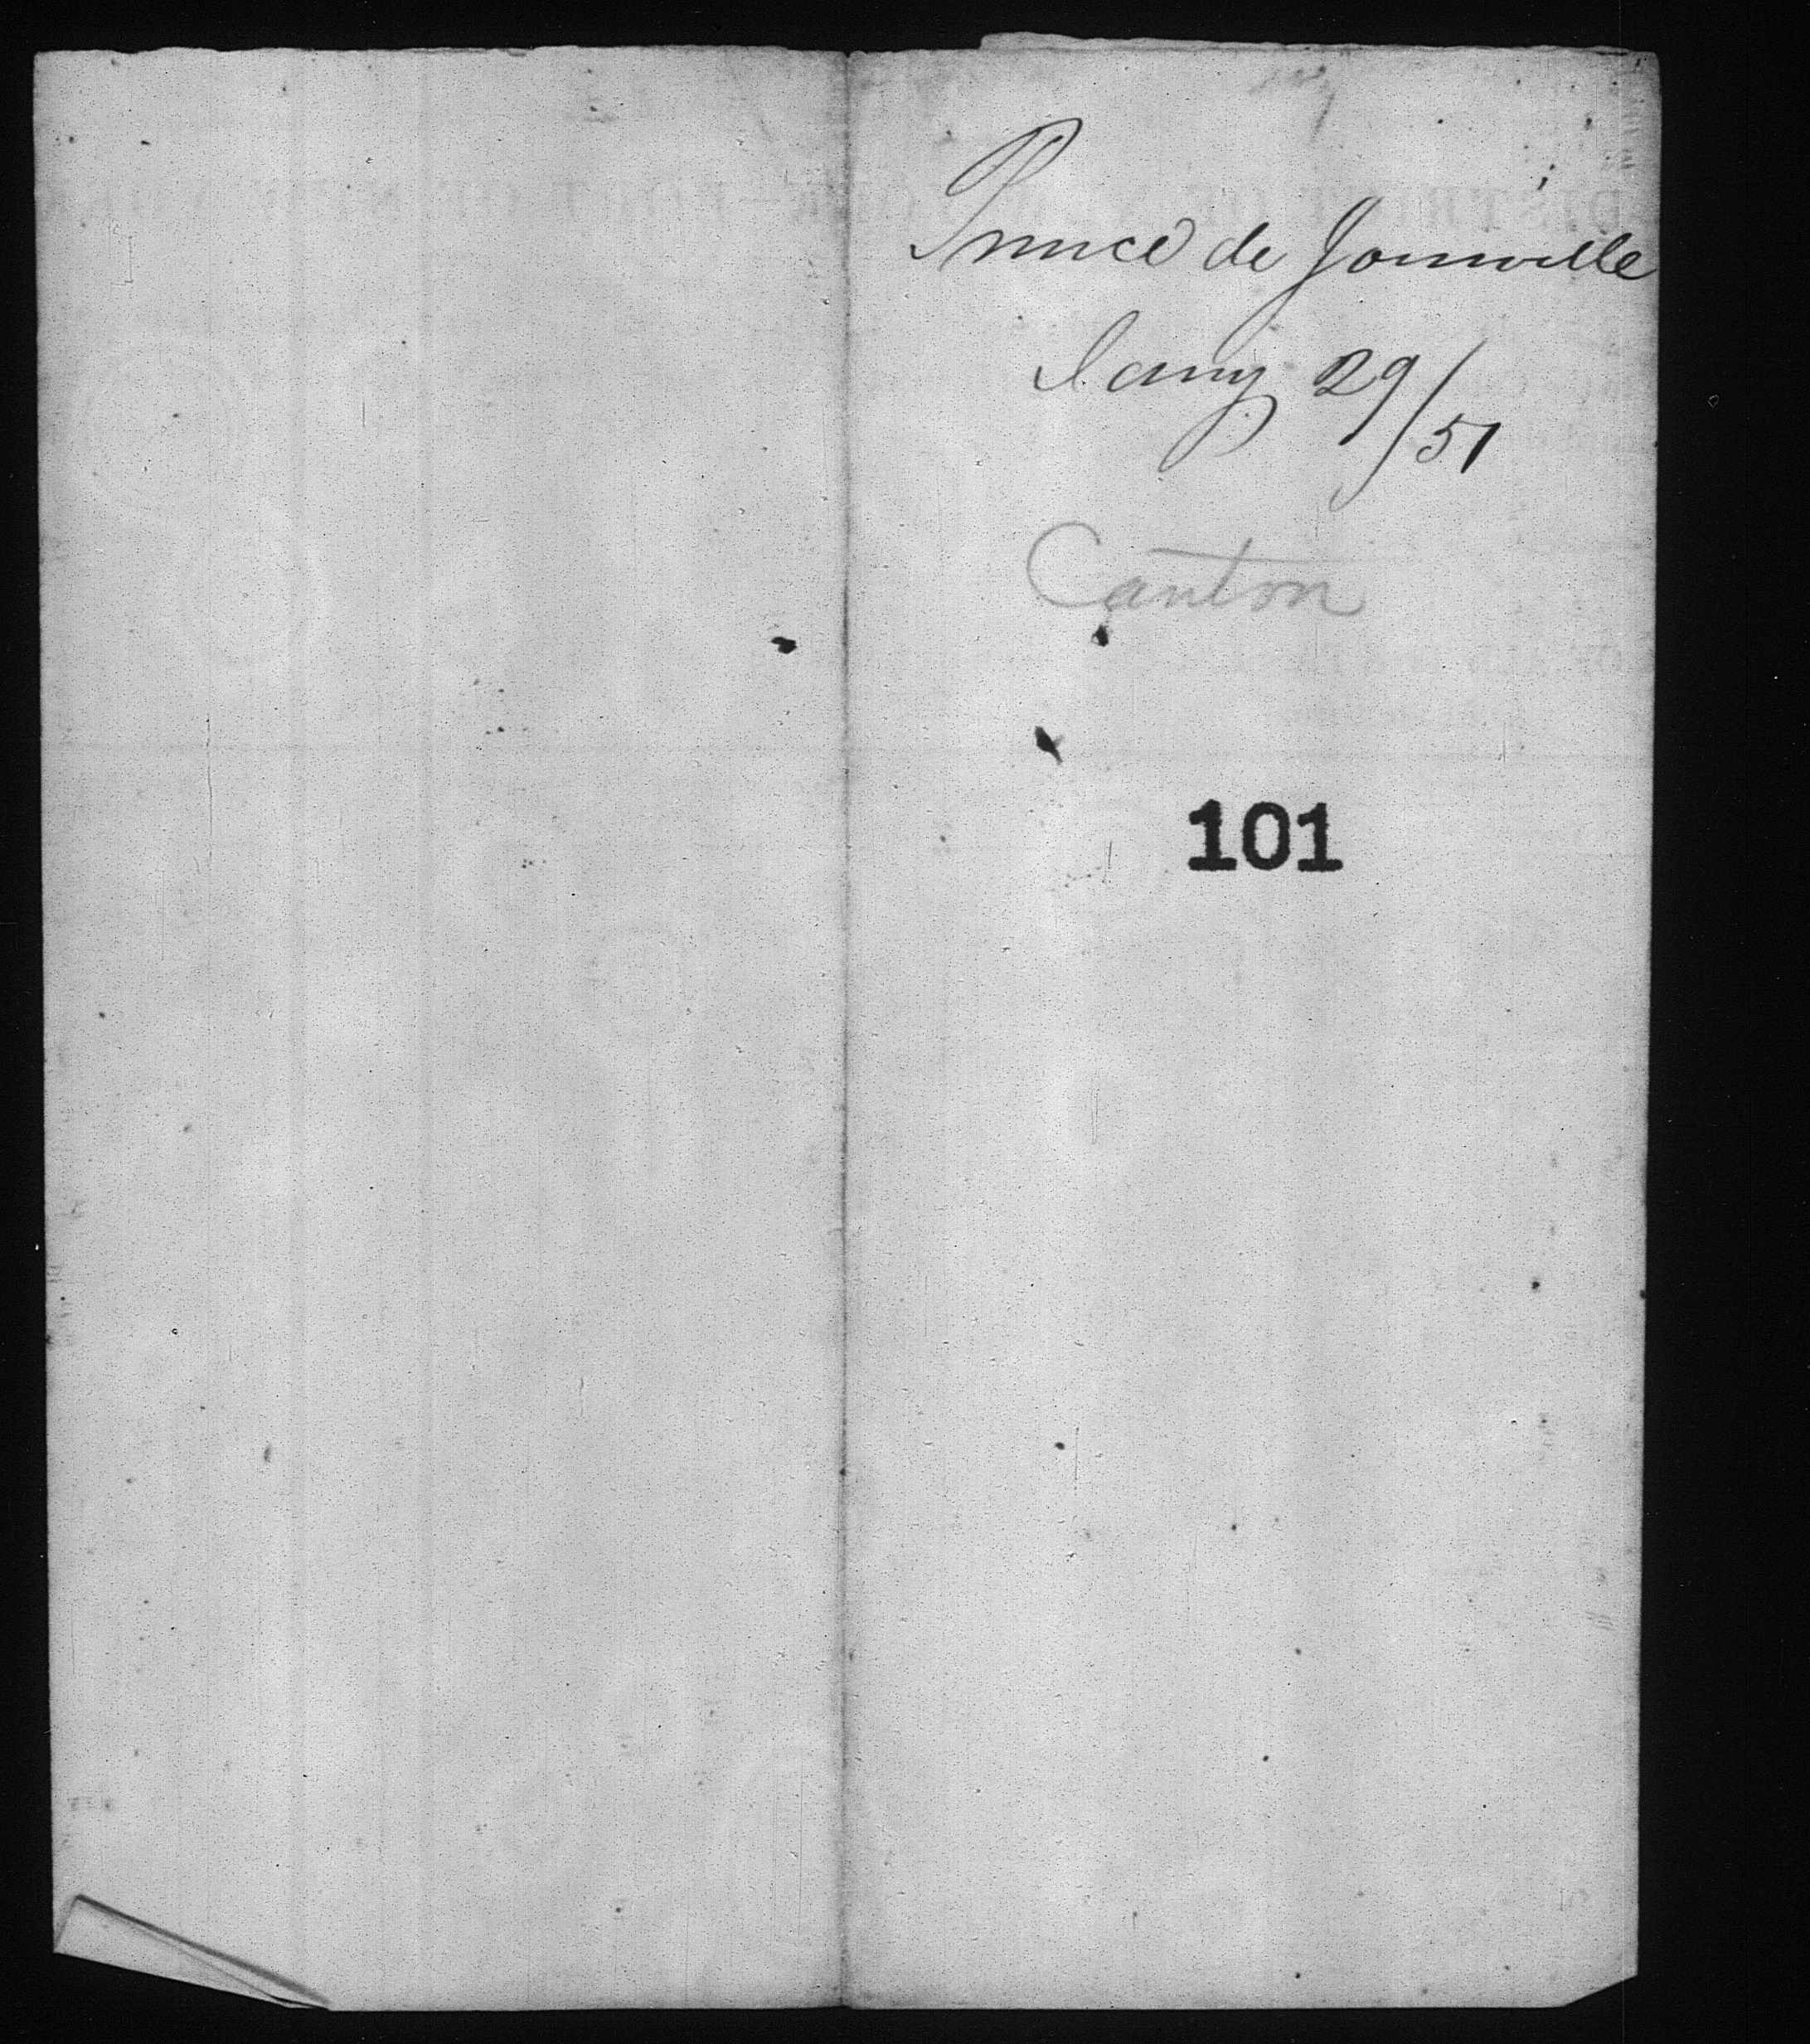 Prince de Joinville
Jany 29/51
Canton
101